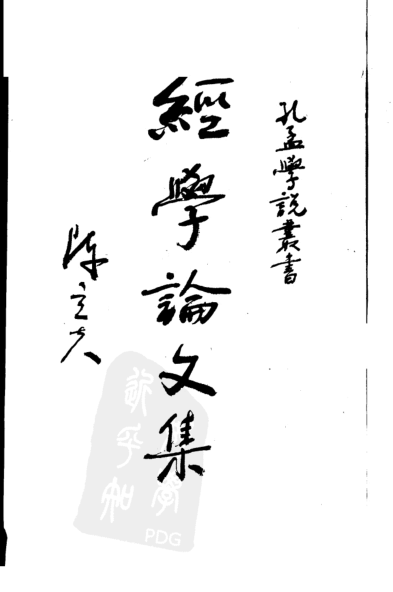 孔孟學説叢書
經學論文集
陳立夫
PDG